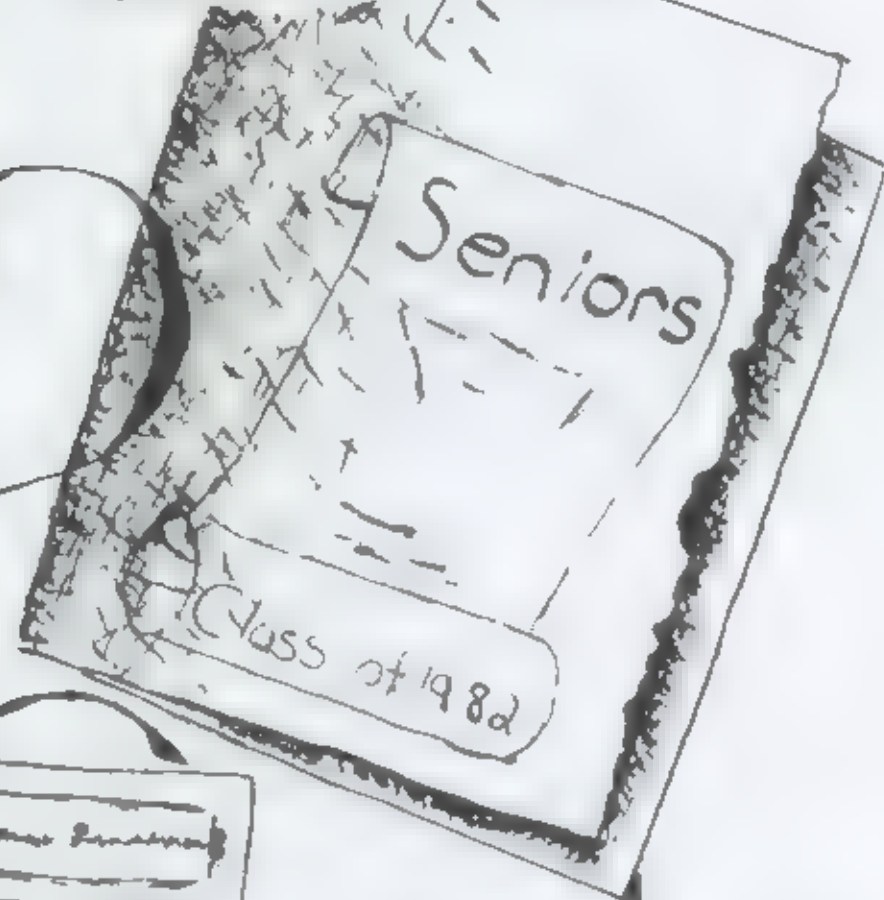 Seniors
Class of 1982